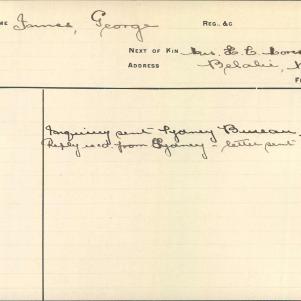 ME James, George REG., &C
NEXT OF KIN Mrs. E. E.
ADDRESS Belalie,
Inquiry sent Sydney Bureau.
Reply recd. from Sydney - letter sent